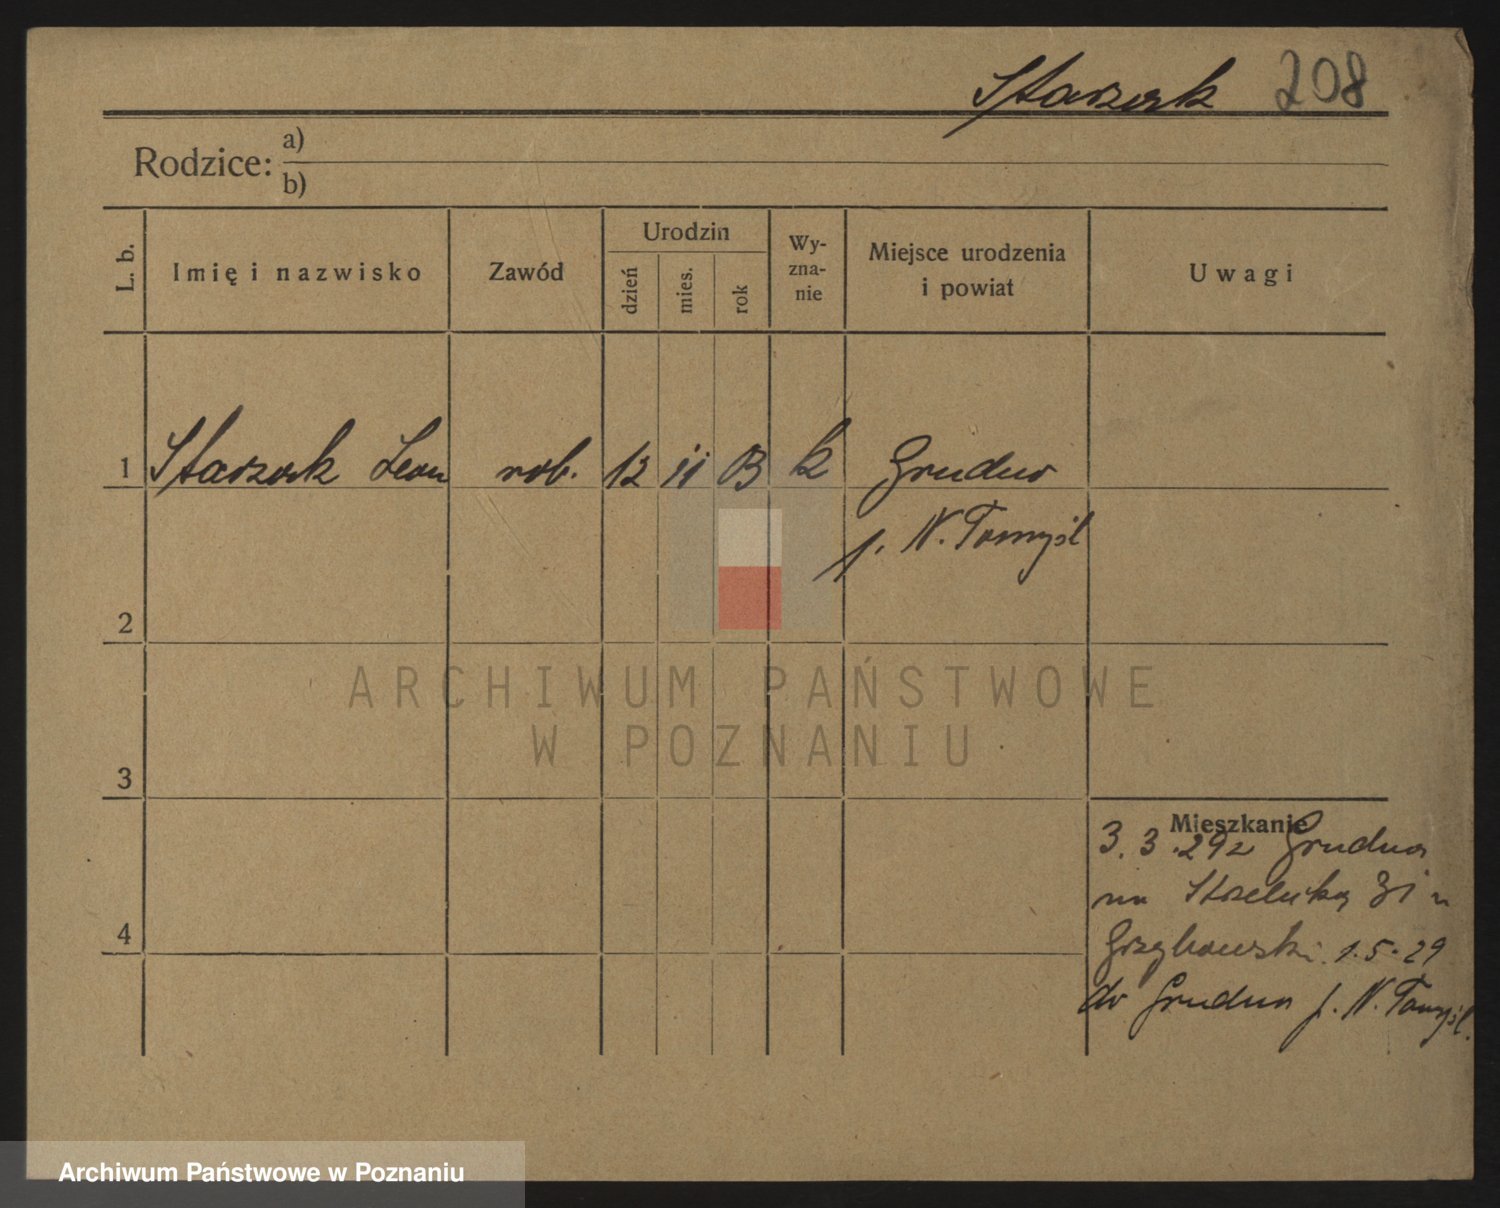 Starzak 208
Rodzice: a)
b)
L. b.
Imię i nazwisko
Zawód
Urodzin
dzień
mies.
rok
Wy-
zna-
nie
Miejsce urodzenia
i powiat
Uwagi
1 Starzak Leon rob. 12 11 k Grudna
p. N. Tomyśl
2
ARCHIWUM PAŃSTWOWE
W POZNANIU
3
Mieszkanie
3. 3. 29 z Grudna
na Strzelecką 31 u
Grzybowski 1.5.29
do Grudna p. N. Tomyśl.
4
Archiwum Państwowe w Poznaniu